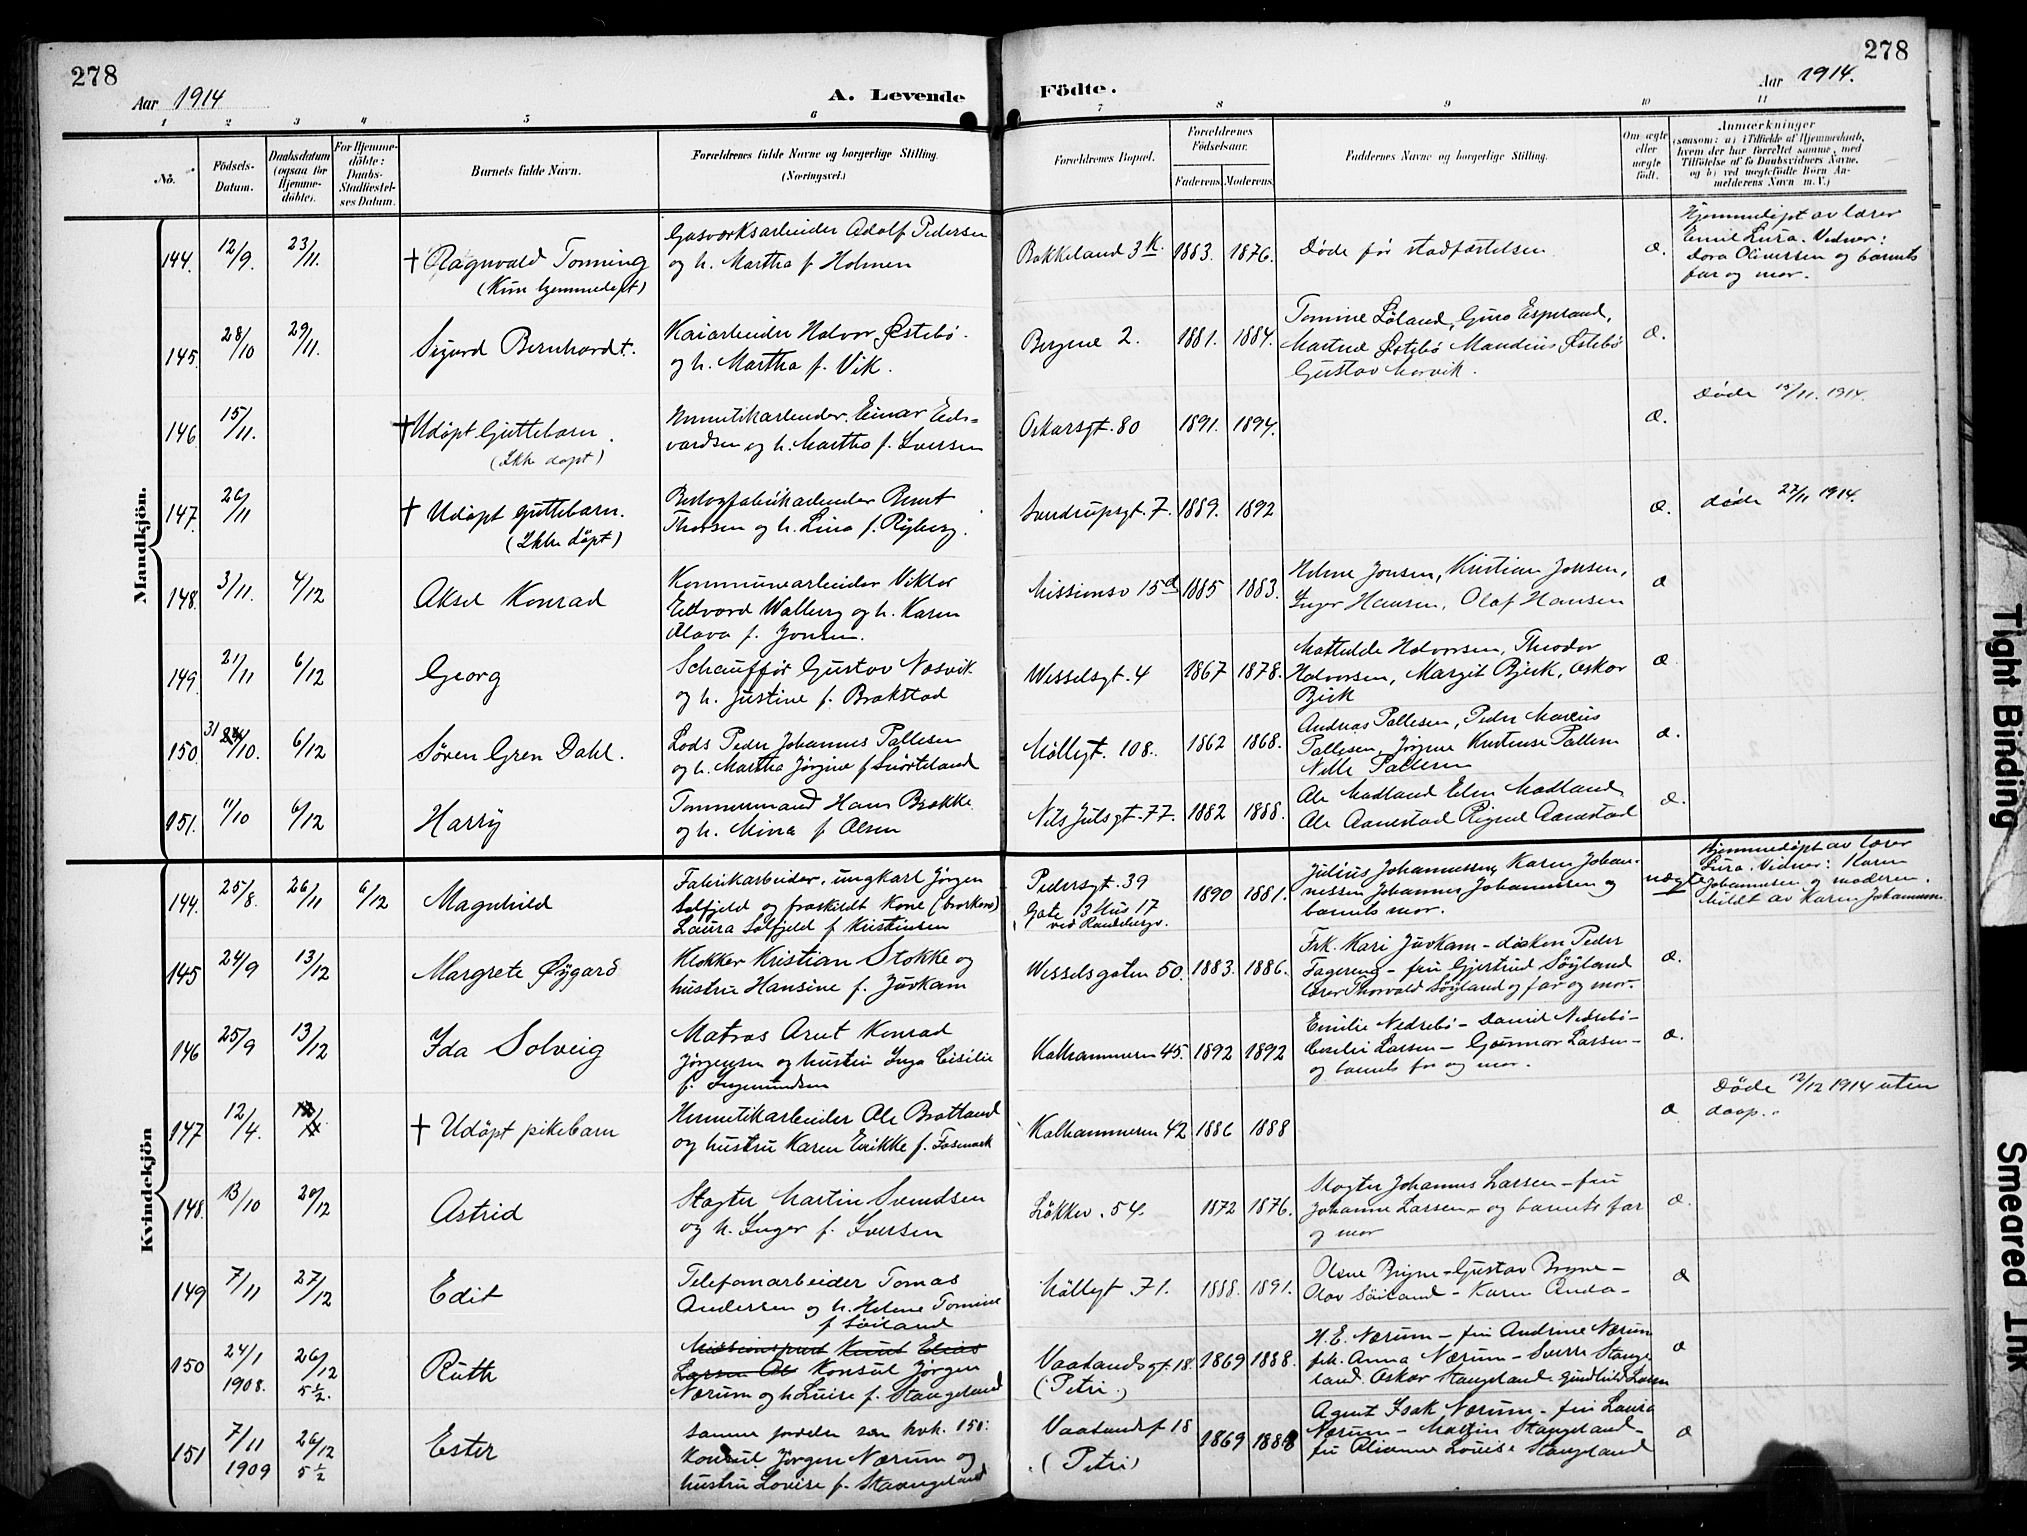 278
Aar 1914
A. Levende
Födte.
Aar 1914.
278
1 2 3 4 5 6 7 8 9 10 11
No.
Födsels-
Datum.
Daabsdatum
(ogsaa for
Hjemme-
döbte).
For Hjemme-
döbte:
Daabs-
Stadfæstel-
ses Datum.
Barnets fulde Navn.
Forældrenes fulde Navne og borgerlige Stilling.
(Næringsvei.)
Forældrenes Bopæl.
Forældrenes
Födselsaar.
Faderens. Moderens.
Faddernes Navne og borgerlige Stilling.
Om ægte
eller
uægte
födt.
Anmærkninger
(saasom: a) i Tilfælde af Hjemmedaab,
hvem der har forrettet samme, med
Tilföielse af to Daabsvidners Navne,
og b) ved uægtefödte Börn An-
melderens Navn m. V.)
Mandkjön.
144. 12/9. 23/11. † Ragnvald Tonning
(Kun hjemmedøpt)
Gasværksarbeider Adolf Pedersen
og h. Martha f. Holmen
Bakkeland 3 K. 1883. 1876. Døde før stadfæstelsen æ.
Hjemmedøpt av lærer
Emil Lura. Vidner:
Dora Oliversen og barnets
far og mor.
145. 28/10 29/11. Sigurd Bernhardt.
Kaiarbeider Halvor Østebö.
og h. Martha f. Vik.
Bergne 2. 1881. 1884.
Tomine Løland, Guro Espeland,
Martine Østebö Mandius Østebö
Gustav Morvik.
æ.
146. 15/11. † Udöpt Guttebarn.
(Ikke døpt)
Hermetikarbeider Einar Eds-
vardsen og h. Martha f. Iversen
Oskarsgt. 80 1891. 1894. æ. Døde 15/11. 1914.
147. 26/11 † Udöpt guttebarn.
(Ikke döpt)
Thorsen og h. Lina f. Ryberg.
7. 1889. 1892 æ. døde 27/11 1914.
148. 3/11. 4/12 Aksel Konrad
Kommunearbeider Viktor
Edvard Walberg og h. Karen
Olava f. Jonsen.
Missionsv 15 d 1885 1883.
Helene Jonsen, Kristian Jonsen,
Inger Hansen, Olaf Hansen
æ
149. 21/11 6/12 Georg
Schauffør Gustav Næsvik
og h. Justine f. Brakstad
Wesselsgt. 4 1867 1878.
Mathilde Halvorsen, Theodor
Halvorsen, Margit Bjerk, Oskar
Bjerk
æ.
150. 31/10. 6/12 Søren Gren Dahl.
Lods Peder Johannes Pallesen
og h. Martha Jørgine f Snørteland
Møllegt. 108. 1862 1868.
Andreas Pallesen, Peder Marius
Pallesen, Jørgine Kristense Pallesen
Nille Pallesen
æ.
151. 11/10 6/12 Harry
Tømmermand Hans Brekke
og h. Mina f Olsen
Nils Julsgt. 77. 1882 1888.
Ole Madland Elen Madland
Ole Aanestad Rignel Aanestad
æ.
Kvindekjön
144. 25/8. 26/11 6/12 Magnhild
Fabrikarbeider, ungkarl Jörgen
Solfjeld og fraskilt kone (                )
Laura Solfjeld f Kristensen
Pedersgt. 39
Gate 13 Hus 17
ved Randabergv.
1890 1881.
Julius Johannessen, Karen Johan-
nessen Johannes Johannesen og
barnets mor.
uægte
Hjemmedöpt av lærer
Lura. Vidner: Karen
Johannesen og moderen.
Meldt av Karen Johannessen.
145 24/9 13/12 Margrete Øygard
Klokker Kristian Stokke og
hustru Hansine f. Juvkam
Wesselsgaten 50. 1883. 1886.
Frk. Kari Juvkam – diskon Peder
Fagereng – fru Gjertrud Søyland
lærer Thorvald Søyland og far og mor.
æ.
146 25/9 13/12 Ida Solveig
Matros Arnt Konrad
Jørgensen og hustru Inga Cicilie
f. Ingmundsen
Kalhammeren 45. 1892 1892
Emilie Nedrebö – David Nedrebö –
Cecilie Larsen – Gunnar Larsen –
og barnets far og mor.
æ.
147 12/4. † Udöpt pikebarn
Hermetikarbeider Ole Bratland
og hustru Karen Enikke f. Fosmark
Kalhammeren 42 1886 1888 æ
Døde 12/12 1914 uten
daap.
148. 13/10 20/12 Astrid
Slagter Martin Svendsen
og h. Inger f. Iversen
Løkkev. 54. 1872 1876.
Slagter Johannes Larsen – fru
Johanne Larsen – og barnets far
og mor
æ.
149 7/11 27/12 Edit
Telefonarbeider Tomas
Andersen og h. Helene Tomine
f Søiland
Møllegt. 71. 1888. 1891.
Olene Bryne – Gustav Bryne –
Olav Søiland – Karen Anda –
æ
150 24/1 1908. 26/12 5 ½. Ruth
Missionsprest Knut Elias
Larsen Ol Konsul Jörgen
Nærum og h Luise f. Stangeland
Vaalandsgt. 18. (Petri.) 1869 1888.
H. E. Nærum – fru Andrine Nærum
frk. Anna Nærum – Sverre Stange
land. Oskar Stangeland. Gundhild Larsen
æ
151 7/11 1909 26/12 5 ½ Ester
Samme foreldre som kvk. 150:
Konsul Jörgen Nærum og
hustru Lovise f. Stangeland
Vaaland f 18 (Petri) 1869 1888
Agent Isak Nærum – fru Laura
Nærum – Martin Stangeland –
fru Olianne Lovise Stangeland
æ
Tight Binding
Smeared Ink